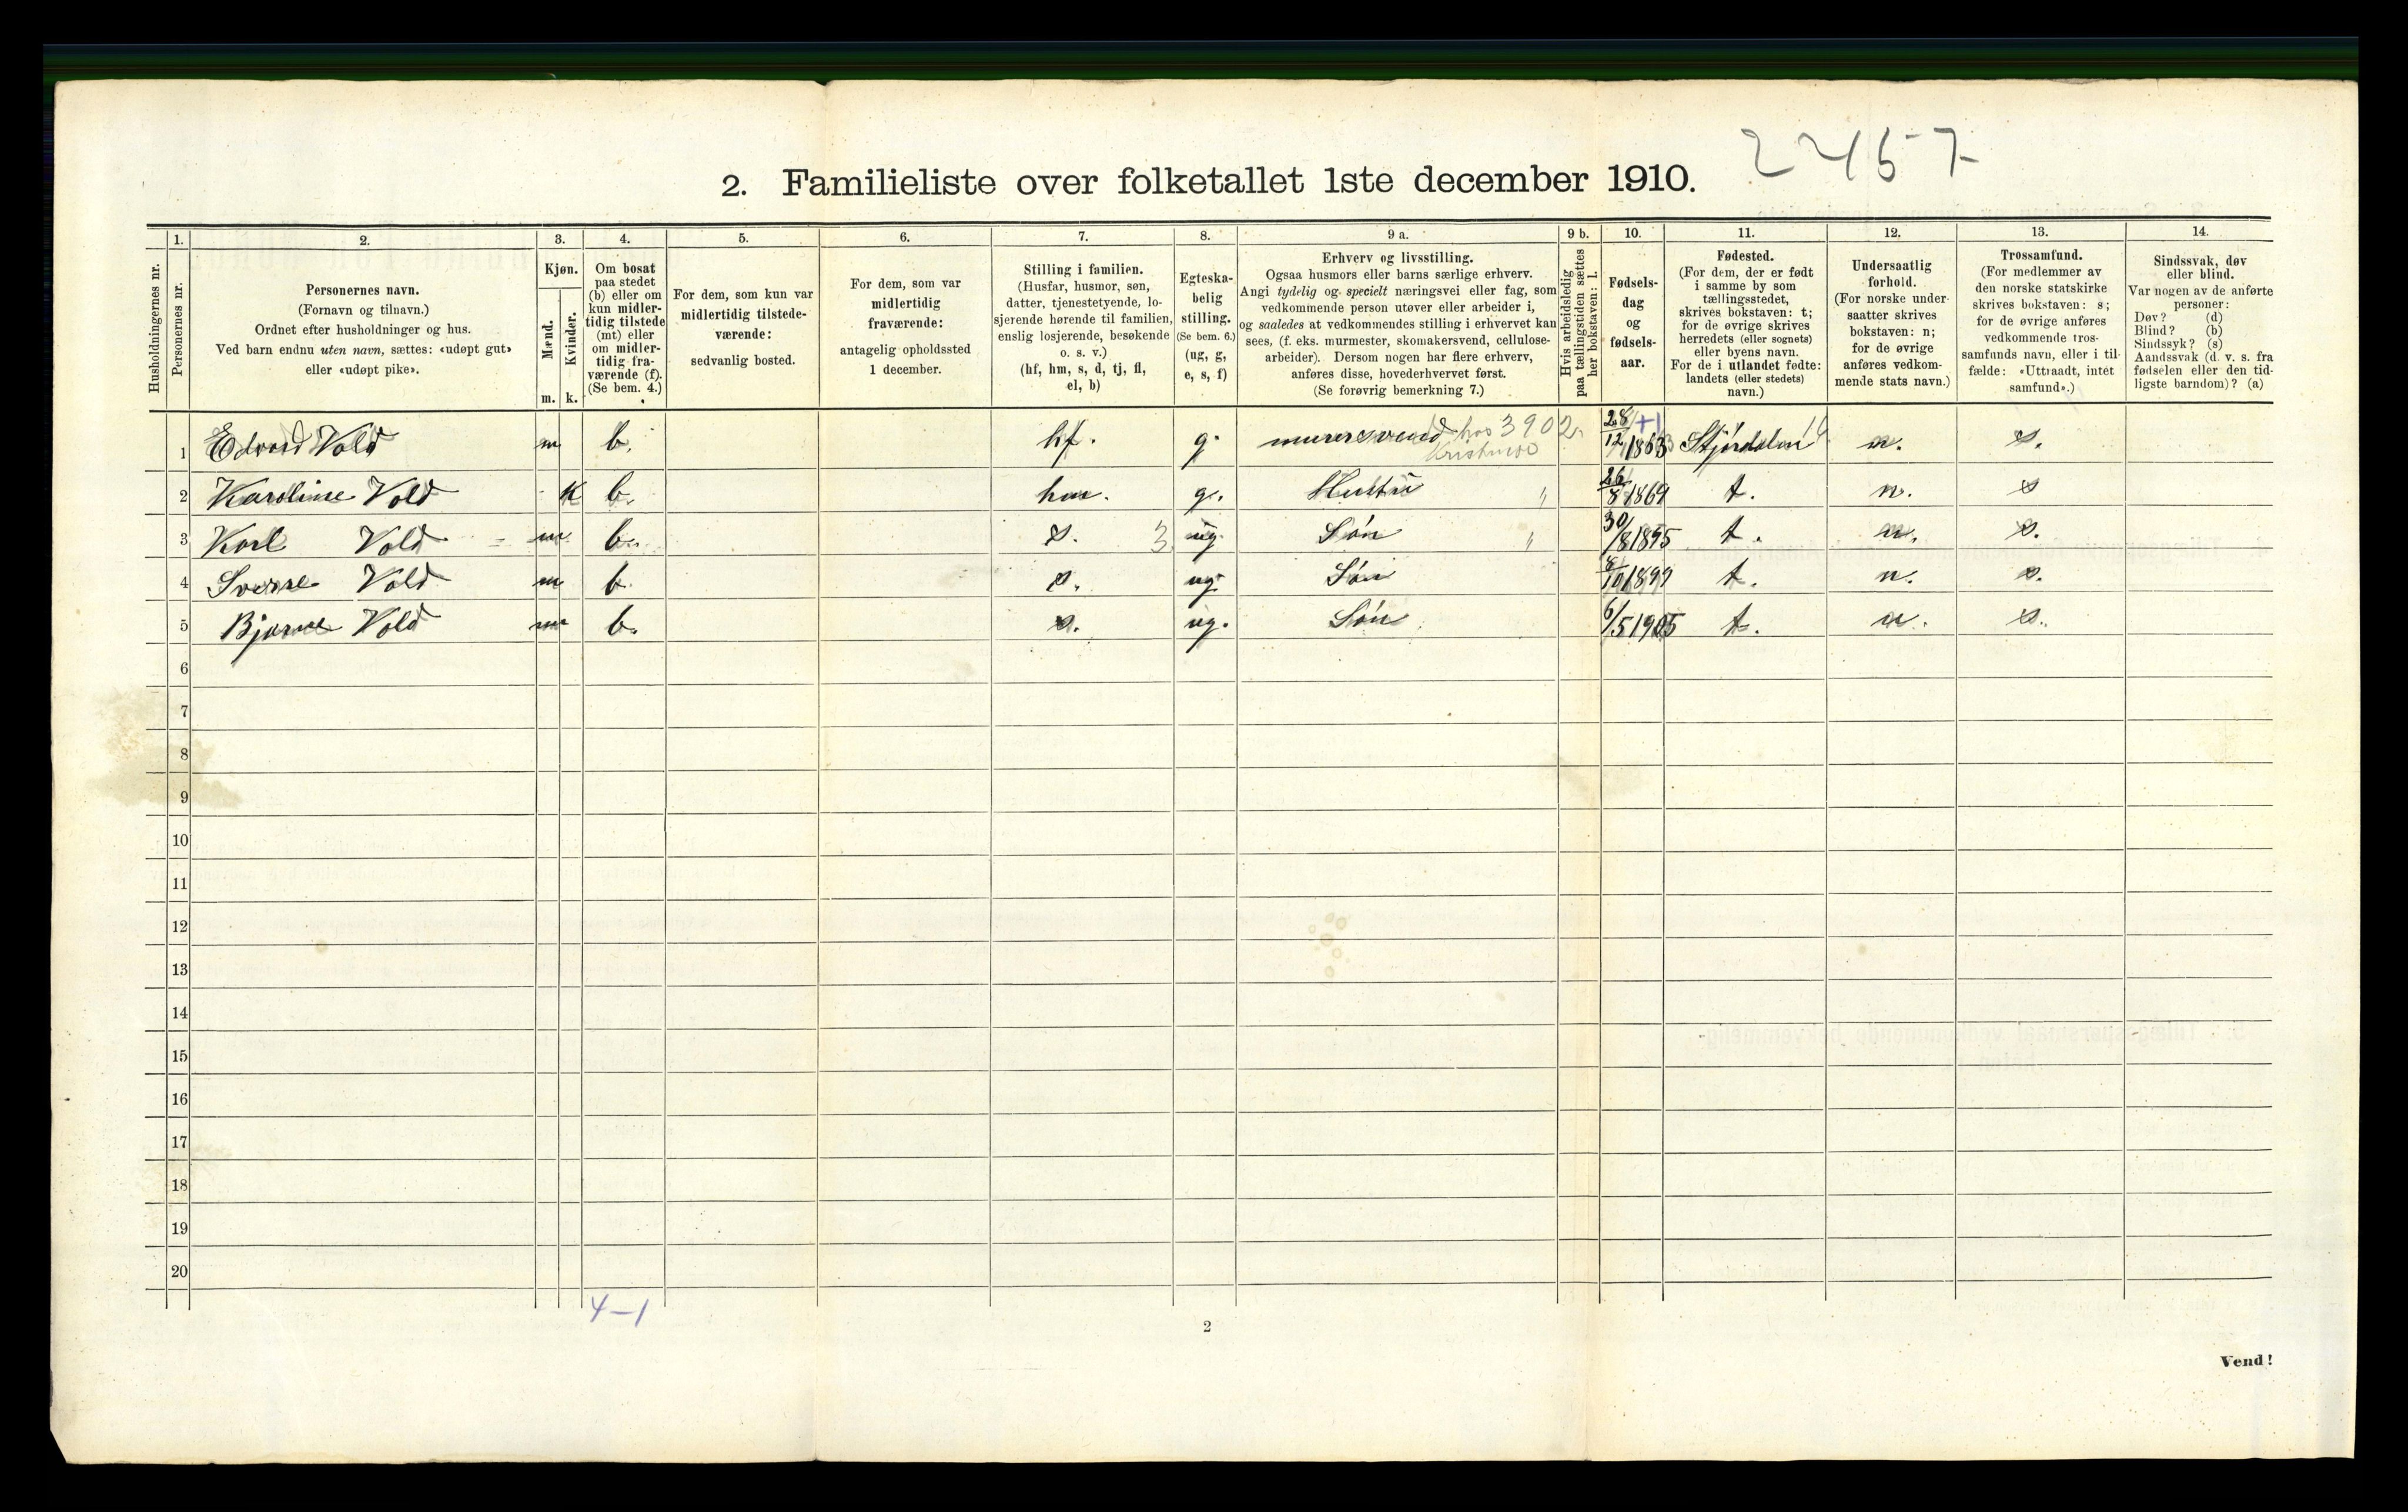 2457
2. Familieliste over folketallet 1ste december 1910.
Husholdningernes nr.
1.
Personernes nr.
2.
Personernes navn.
(Fornavn og tilnavn.)
Ordnet efter husholdninger og hus.
Ved barn endnu uten navn, sættes: «udøpt gut»
eller «udøpt pike».
3.
Kjøn.
Mænd.
Kvinder.
m. k.
4.
Om bosat
paa stedet
(b) eller om
kun midler-
tidig tilstede
(mt) eller
om midler-
tidig fra-
værende (f).
(Se bem. 4.)
5.
For dem, som kun var
midlertidig tilstede-
værende:
sedvanlig bosted.
6.
For dem, som var
midlertidig
fraværende:
antagelig opholdssted
1 december.
7.
Stilling i familien.
(Husfar, husmor, søn,
datter, tjenestetyende, lo-
sjerende hørende til familien,
enslig losjerende, besøkende
o. s. v.)
(hf, hm, s, d, tj, fl,
el, b)
8.
Egteska-
belig
stilling.
(Se bem. 6.)
(ug, g,
e, s, f)
9 a.
Erhverv og livsstilling.
Ogsaa husmors eller barns særlige erhverv.
Angi tydelig og specielt næringsvei eller fag, som
vedkommende person utøver eller arbeider i,
og saaledes at vedkommendes stilling i erhvervet kan
sees, (f. eks. murmester, skomakersvend, cellulose-
arbeider). Dersom nogen har flere erhverv,
anføres disse, hovederhvervet først.
(Se forøvrig bemerkning 7.)
9 b.
Hvis arbeidsledig
paa tællingstiden sættes
her bokstaven: l.
10.
Fødsels-
dag
og
fødsels-
aar.
11.
Fødested.
(For dem, der er født
i samme by som
tællingsstedet,
skrives bokstaven: t;
for de øvrige skrives
herredets (eller sognets)
eller byens navn.
For de i utlandet fødte:
landets (eller stedets)
navn.)
12.
Undersaatlig
forhold.
(For norske under-
saatter skrives
bokstaven: n;
for de øvrige
anføres vedkom-
mende stats navn.)
13.
Trossamfund.
(For medlemmer av
den norske statskirke
skrives bokstaven: s;
for de øvrige anføres
vedkommende tros-
samfunds navn, eller i til-
fælde: «Uttraadt, intet
samfund».)
14.
Sindssvak, døv
eller blind.
Var nogen av de anførte
personer:
Døv? (d)
Blind? (b)
Sindssyk? (s)
Aandssvak (d. v. s. fra
fødselen eller den tid-
ligste barndom)? (a)
1 Edvard Vold m b. hf. g. murersvend hos 3902 28/12 1863 +1 Stjørdalen n. s.
2 Karoline Vold K b. hm. g. Hustru " 26/8 1869 t. n. s
3 Karl Vold m b. s. 3 ug Søn " 30/8 1895 t. n. s.
4 Sverre Vold m b. s. ug Søn 8/10 1899 t. n. s.
5 Bjarne Vold m b. s. ug. Søn 6/5 1905 t. n. s.
6
7
8
9
10
11
12
13
14
15
16
17
18
19
20
4-1
2
Vend!